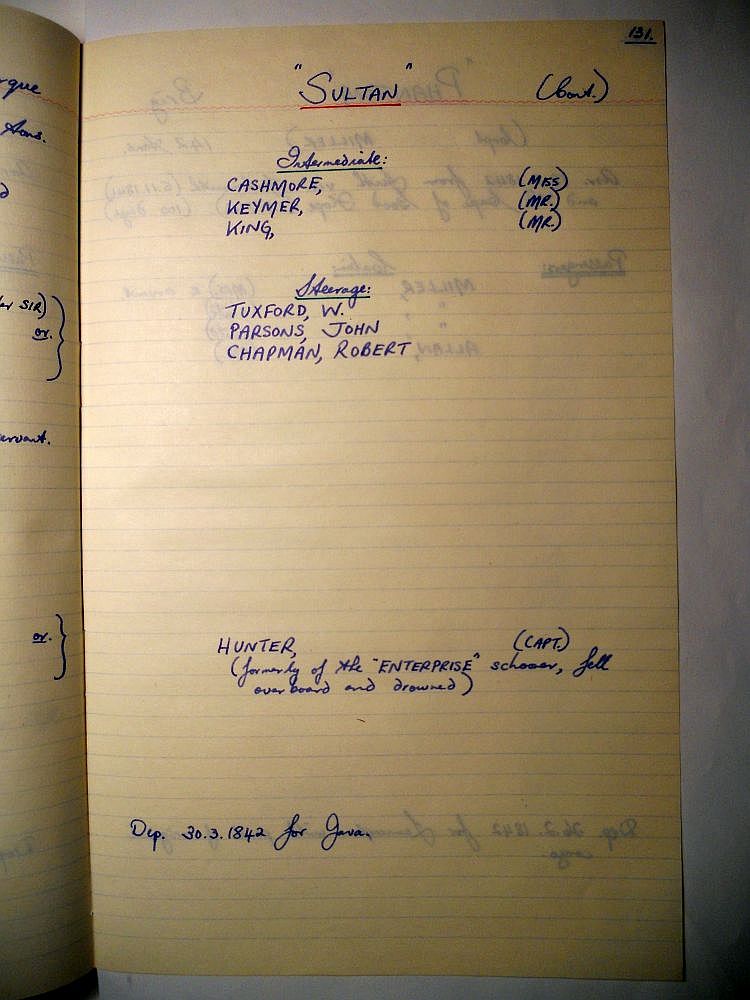 131.
"SULTAN" (Cont.)
Intermediate:
CASHMORE, (MISS)
KEYMER, (MR.)
KING, (MR.)
Steerage:
TUXFORD, W.
PARSONS, JOHN
CHAPMAN, ROBERT
HUNTER, (CAPT.)
(formerly of the "ENTERPRISE" schooner, fell
overboard and drowned)
Dep. 30.3.1842 for Java.
rque
Aons.
er SIR)
or.
ervant.
or.